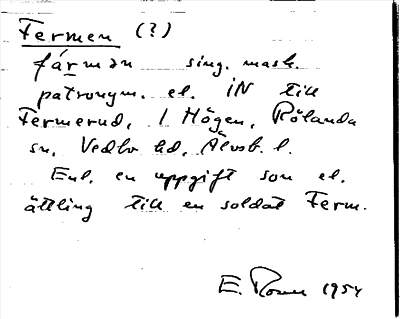 Fermen (?)
fármən sing. mask.
patronym. el. iN till
Fermerud, 1 Högen, Rölanda
sn, Vedbo hd, Älvsb. l.
Enl. en uppgift son el.
ättling till en soldat Ferm.
E. 1954